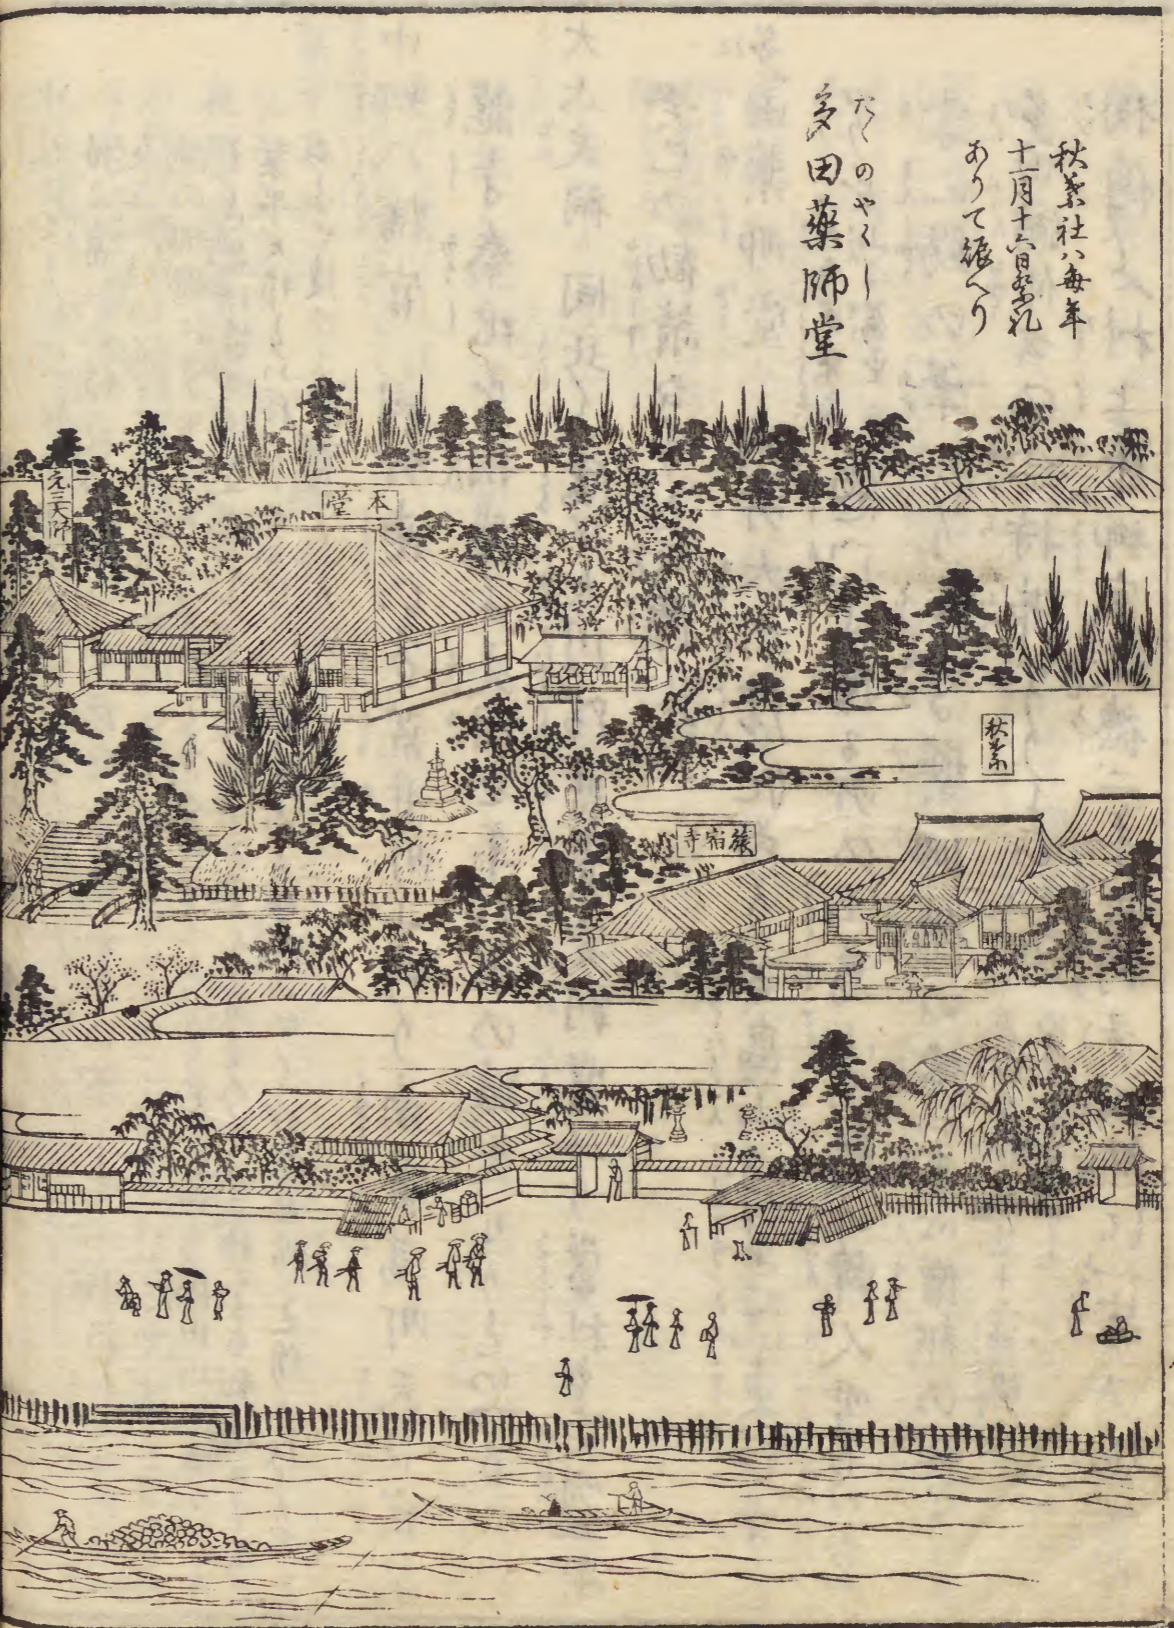 秋葉社ハ毎年
十一月十六日祭礼
ありて賑へり
たゝのやくし
多田薬師堂
元三大師
本堂
秋葉
旅宿寺